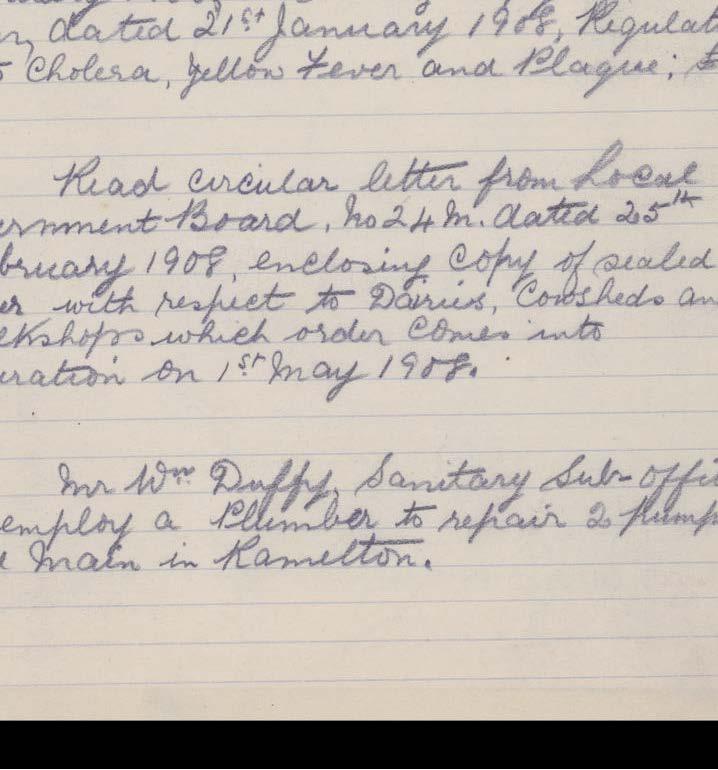 dated 21st January 1908, Regulat
Cholera, Yellow Fever and Plague;
Read circular letter from Local
ernment Board, No 24 M. dated 25th
bruary 1908, enclosing Copy of sealed
er with respect to Dairies, Cowsheds an
rkshops which order comes into
eration on 1st May 1908.
Mr Wm Duffy, Sanitary Sub-offi
employ a Plumber to repair 2 Pump
Main in Ramelton.